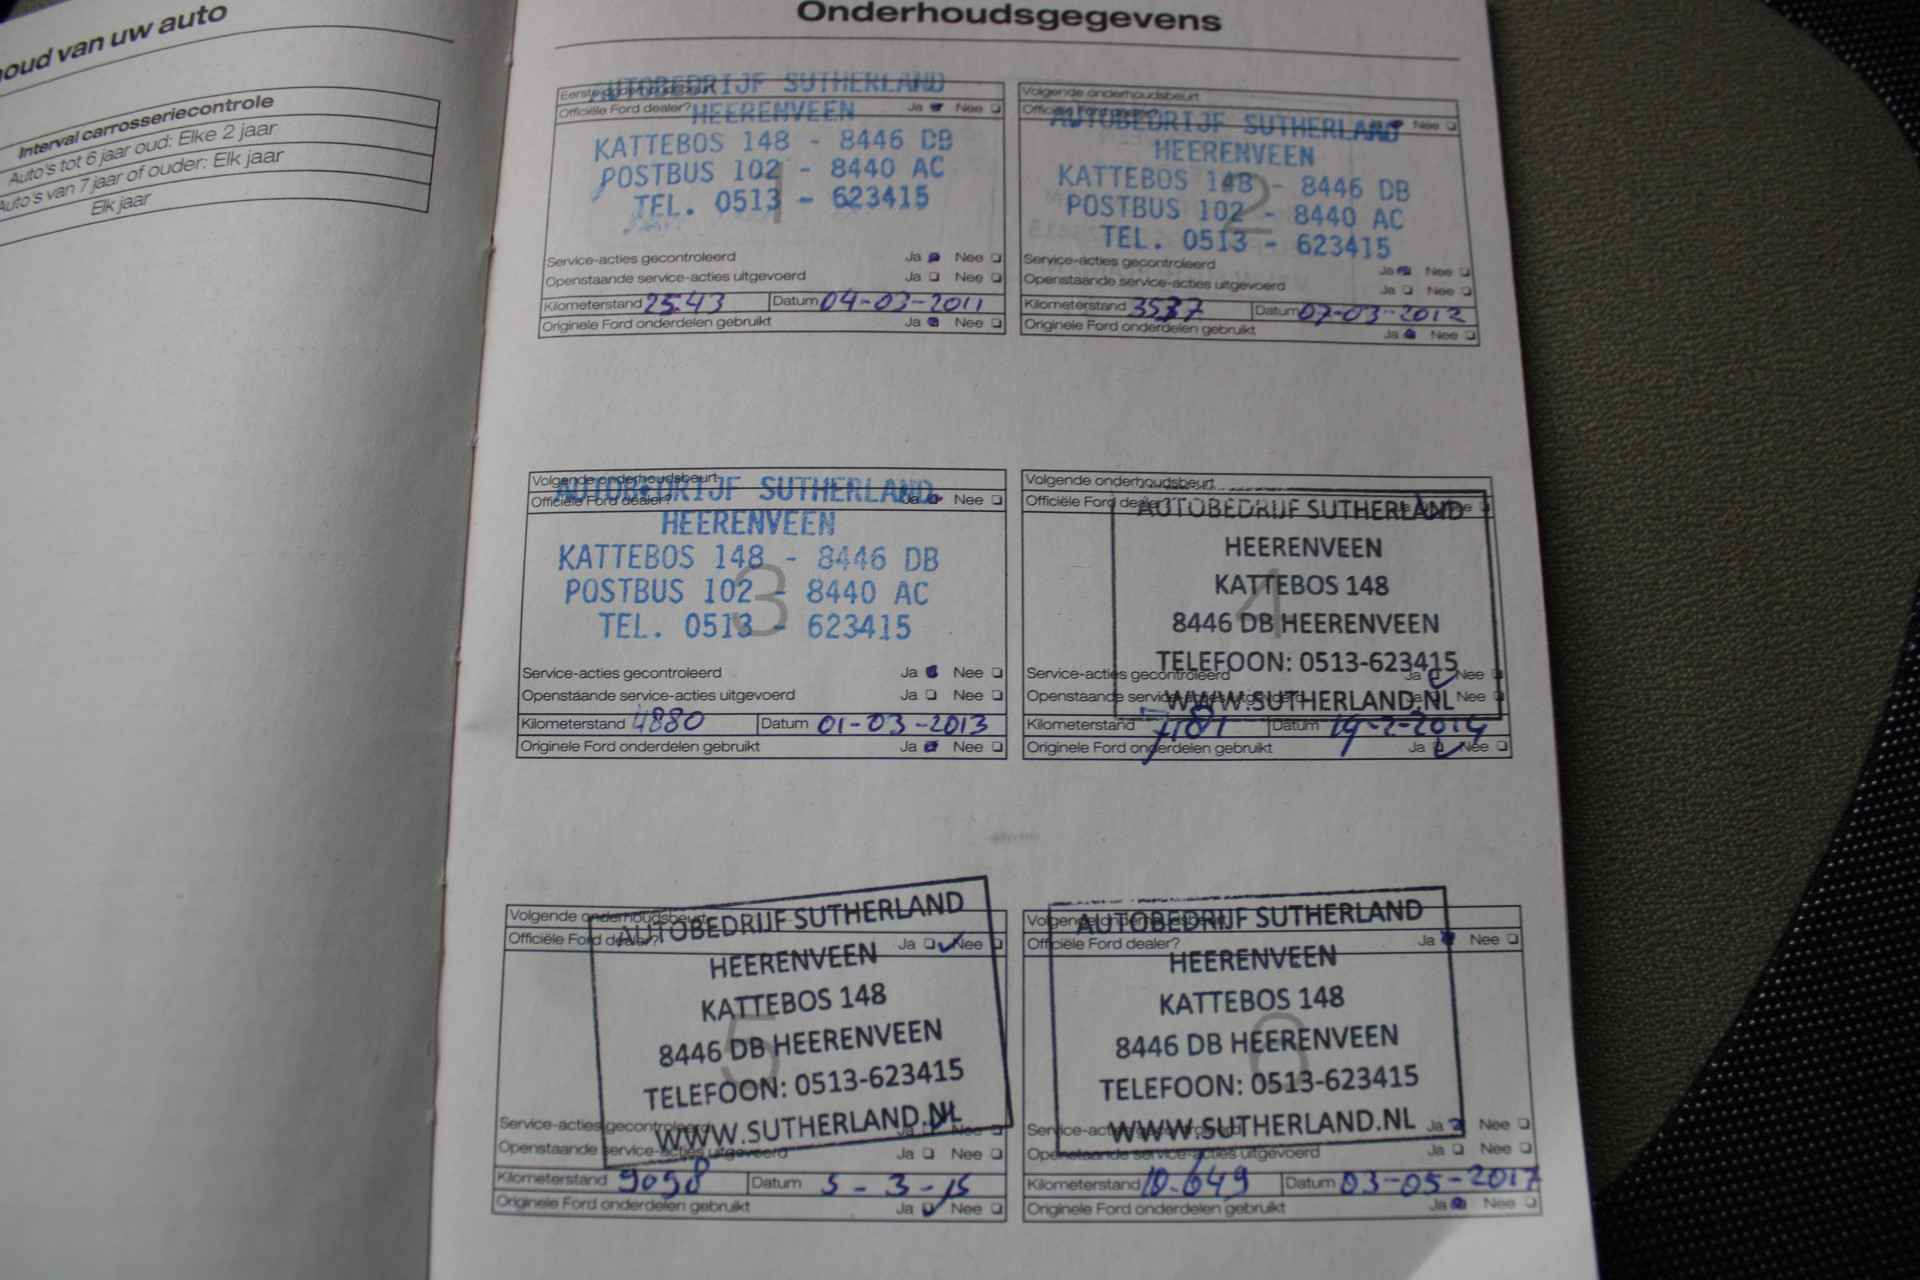 oud van uw auto
Interval carrosseriecontrole
Auto's tot 6 jaar oud: Elke 2 jaar
Auto's van 7 jaar of ouder: Elk jaar
Elk jaar
Onderhoudsgegevens
Eerste onderhoudsbeurt
Officiële Ford dealer? Ja Nee
AUTOBEDRIJF SUTHERLAND
HEERENVEEN
KATTEBOS 148 - 8446 DB
POSTBUS 102 - 8440 AC
TEL. 0513 - 623415
1
Service-acties gecontroleerd Ja Nee
Openstaande service-acties uitgevoerd Ja Nee
Kilometerstand 2543 Datum 04-03-2011
Originele Ford onderdelen gebruikt Ja Nee
Volgende onderhoudsbeurt
Officiële Ford dealer? Nee
AUTOBEDRIJF SUTHERLAND
HEERENVEEN
KATTEBOS 148 - 8446 DB
POSTBUS 102 - 8440 AC
TEL. 0513 - 623415
2
Service-acties gecontroleerd Ja Nee
Openstaande service-acties uitgevoerd Ja Nee
Kilometerstand 3537 Datum 07-03-2012
Originele Ford onderdelen gebruikt Ja Nee
Volgende onderhoudsbeurt
Officiële Ford dealer? Ja Nee
AUTOBEDRIJF SUTHERLAND
HEERENVEEN
KATTEBOS 148 - 8446 DB
POSTBUS 102 - 8440 AC
TEL. 0513 - 623415
3
Service-acties gecontroleerd Ja Nee
Openstaande service-acties uitgevoerd Ja Nee
Kilometerstand 4880 Datum 01-03-2013
Originele Ford onderdelen gebruikt Ja Nee
Volgende onderhoudsbeurt
Officiële Ford dealer
AUTOBEDRIJF SUTHERLAND
HEERENVEEN
KATTEBOS 148
8446 DB HEERENVEEN
TELEFOON: 0513-623415
WWW.SUTHERLAND.NL
4
Service-acties gecontroleerd Ja Nee
Openstaande service-acties Nee
Kilometerstand 7181 Datum 19-2-2014
Originele Ford onderdelen gebruikt Ja Nee
Volgende onderhoudsbeurt
Officiële Ford dealer? Ja Nee
AUTOBEDRIJF SUTHERLAND
HEERENVEEN
KATTEBOS 148
8446 DB HEERENVEEN
TELEFOON: 0513-623415
WWW.SUTHERLAND.NL
5
Service-acties gecontroleerd Ja Nee
Openstaande service-acties uitgevoerd Ja Nee
Kilometerstand 9098 Datum 5-3-15
Originele Ford onderdelen gebruikt Ja Nee
Volgende onderhoudsbeurt
Officiële Ford dealer? Ja Nee
AUTOBEDRIJF SUTHERLAND
HEERENVEEN
KATTEBOS 148
8446 DB HEERENVEEN
TELEFOON: 0513-623415
WWW.SUTHERLAND.NL
6
Service-acties gecontroleerd Ja Nee
Openstaande service-acties uitgevoerd Ja Nee
Kilometerstand 10.649 Datum 03-05-2017
Originele Ford onderdelen gebruikt Ja Nee